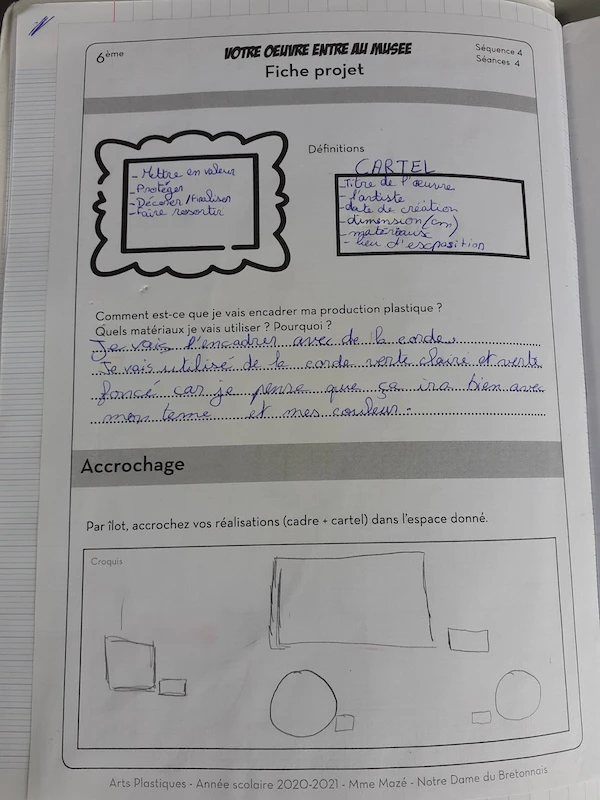 6ème
VOTRE OEUVRE ENTRE AU MUSEE
Fiche projet
Séquence 4
Séances 4
- Mettre en valeur
- Protéger
- Décorer/Finalison
- Faire ressortir
Définitions
CARTEL
- Titre de l'œuvre
- l'artiste
- date de création
- dimension (cm)
- matéreaux
- lieu d'exsposition
Comment est-ce que je vais encadrer ma production plastique ?
Quels matériaux je vais utiliser ? Pourquoi ?
Je vais l'encadrer avec de la corde.
Je vais utilisé de la corde verte claire et verte
foncé car je pense que ça ira bien avec
mon teme et mes couleur.
Accrochage
Par îlot, accrochez vos réalisations (cadre + cartel) dans l'espace donné.
Croquis
Arts Plastiques - Année scolaire 2020-2021 - Mme Mazé - Notre Dame du Bretonnais